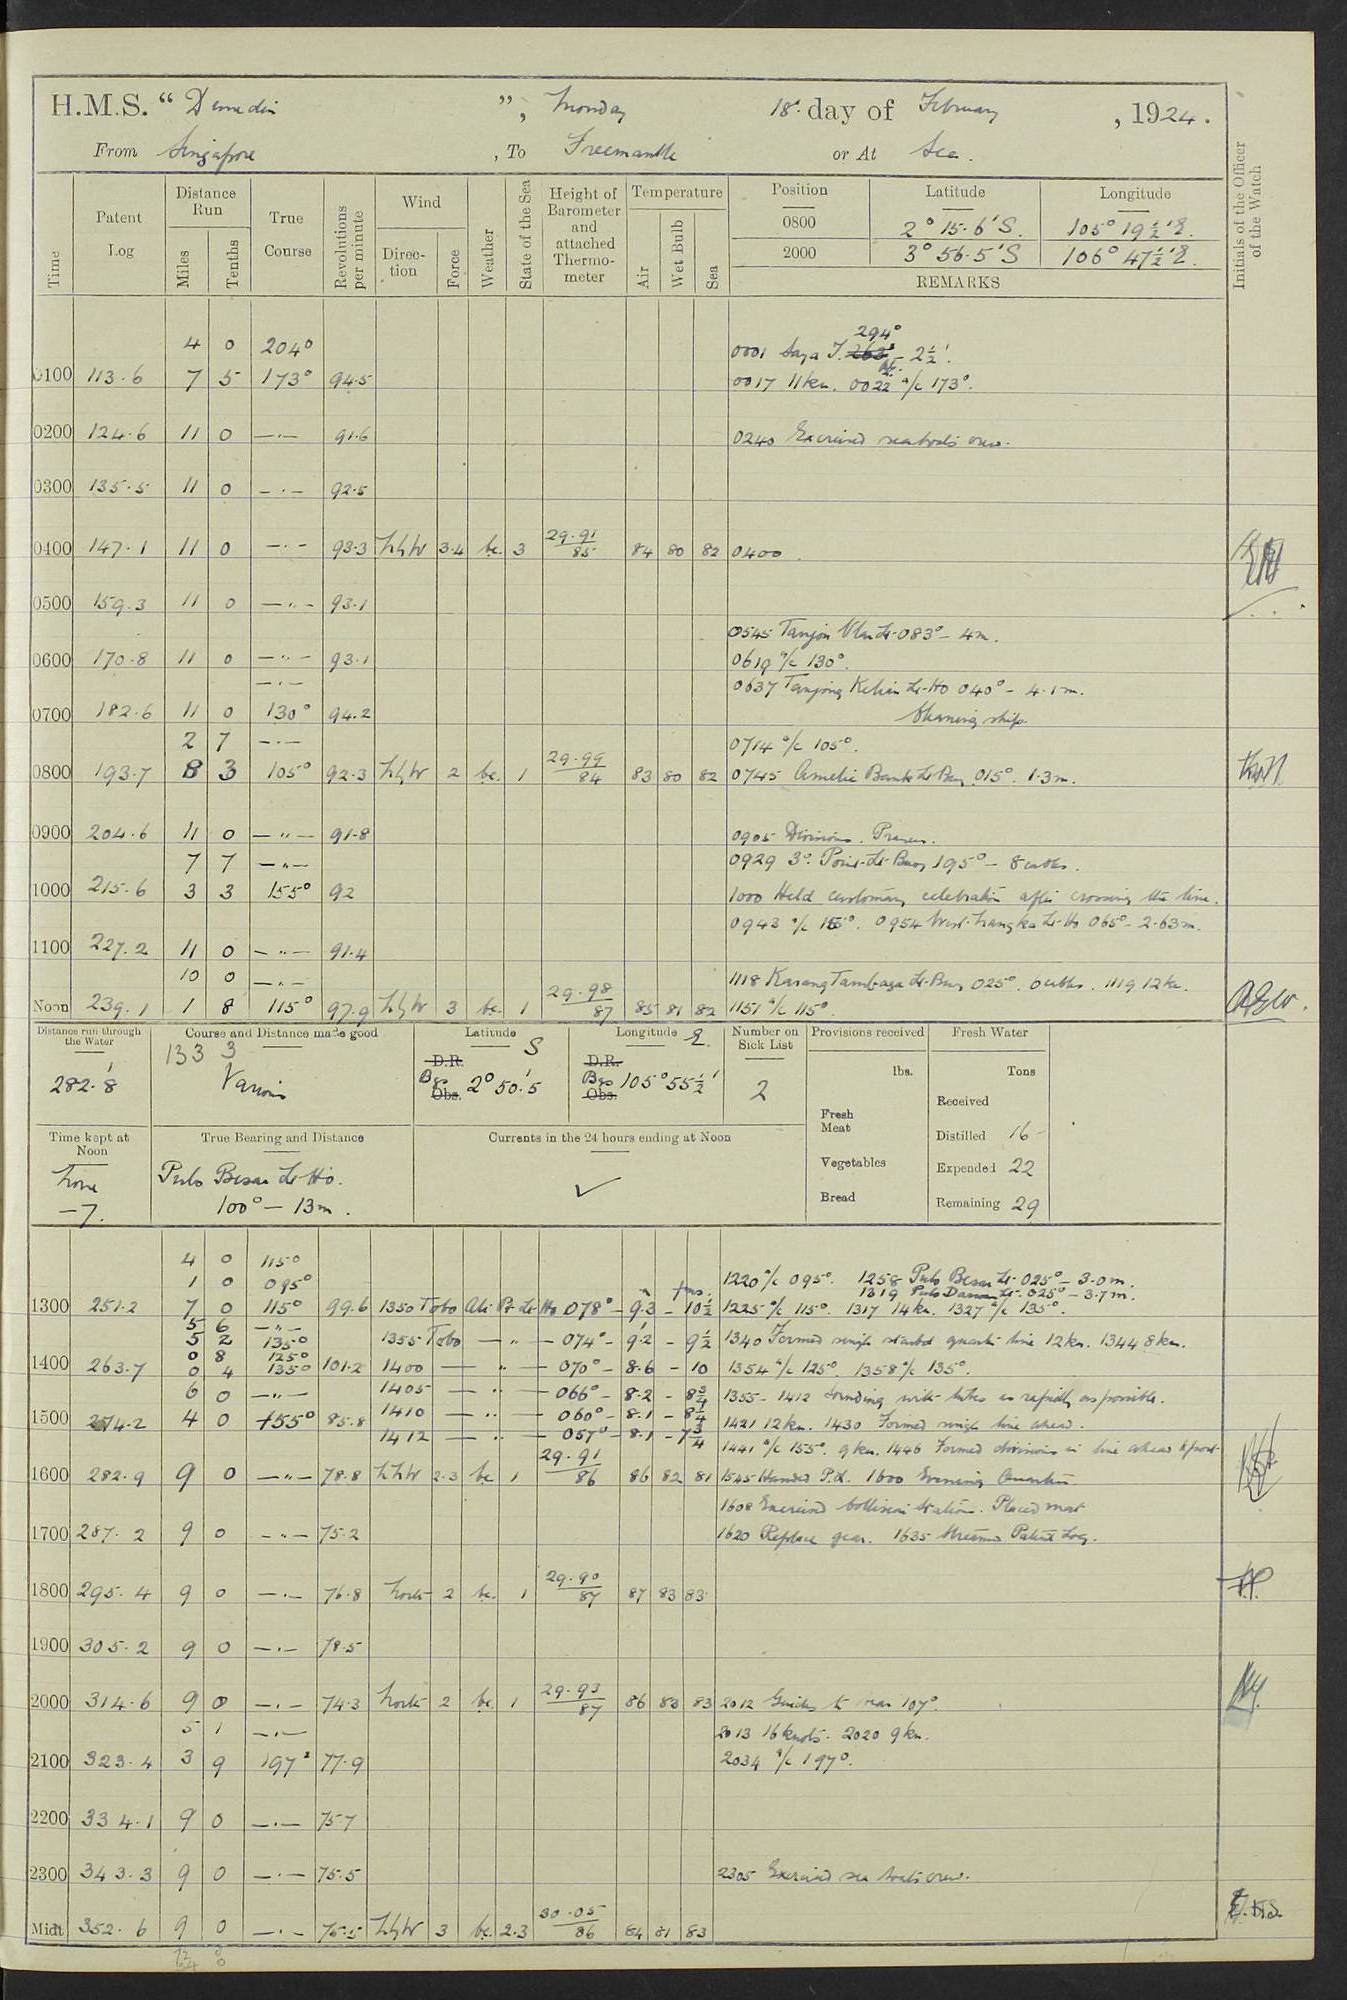 H.M.S. “ Dunedin ”, Monday 18th day of February, 1924.
From Singapore, To Freemantle or At Sea.
Time
Patent Log
Distance Run
Miles
Tenths
True Course
Revolutions per minute
Wind
Direction
Force
Weather
State of the Sea
Height of Barometer and attached Thermometer
Temperature
Air
Wet Bulb
Sea
Position Latitude Longitude
0800 2° 15·6' S. 105° 19½' E.
2000 3° 56·5' S 106° 47½' E.
REMARKS
Initials of the Officer of the Watch
4 0 204° 0001 Saya I. 294° - 2½'.
0100 113·6 7 5 173° 94·5 0017 11 kn. 0022 a/c 173°.
0200 124·6 11 0 —·— 91·6 0240 Exercised seaboats crew.
0300 135·5 11 0 —·— 92·5
0400 147·1 11 0 —·— 93·3 NbyW 3·4 bc. 3 29·91/85 84 80 82 0400.
0500 159·3 11 0 —"— 93·1
0545 Tanjon Lt 083° - 4m.
0600 170·8 11 0 —"— 93·1 0619 a/c 130°.
—·— 0637 Tanjong Kelian Lt-Ho 040° - 4·1m.
0700 182·6 11 0 130° 94·2 ships
2 7 —·— 0714 a/c 105°.
0800 193·7 8 3 105° 92·3 NbyW 2 bc. 1 29·99/84 83 80 82 0745 Amelia Bank Lt Buoy 015°. 1·3m.
0900 204·6 11 0 —"— 91·8 0905 Divisions. Prayers.
7 7 —"— 0929 3° Point Lt Buoy 195° - 8 cables.
1000 215·6 3 3 155° 92 1000 Held customary celebration after crossing the line.
0943 a/c 155°. 0954 West Nangka Lt-Ho 065° - 2·63m.
1100 227·2 11 0 —"— 91·4
10 0 —·— 1118 Karang Tambaga Lt-Buoy 025°. 6 cables. 1119 12 kn.
Noon 239·1 1 8 115° 97·9 NbyW 3 bc. 1 29·98/87 85 81 82 1151 a/c 115°.
Distance run through the Water
282·8
Course and Distance made good
133 3
Various
Latitude S
D.R.
Obs. 2° 50'·5
Longitude E.
D.R.
Obs. 105° 55½'
Number on Sick List
2
Provisions received
lbs.
Fresh Meat
Vegetables
Bread
Fresh Water
Tons
Received
Distilled 16
Expended 22
Remaining 29
Time kept at Noon
Zone
-7.
True Bearing and Distance
Pulo Besar Lt Ho.
100° - 13m.
Currents in the 24 hours ending at Noon
✓
4 0 115°
1 0 095° 1220 a/c 095°. 1258 Pulo Besar Lt 025° - 3·0m.
1319 Pulo Lt 025° - 3·7m.
1300 251·2 7 0 115° 99·6 1350 Tobo Ali Pt Lt Ho 078° - 9·3 - 10½ 1225 a/c 115°. 1317 14 kn. 1327 a/c 135°.
5 6 —"—
5 2 135° 1355 Tobo —"— 074° - 9·2 - 9½ 1340 Formed single starbd quarter line 12 kn. 1344 8 kn.
0 8 125°
1400 263·7 0 4 135° 101·2 1400 —"— 070° - 8·6 - 10 1354 a/c 125°. 1358 a/c 135°.
6 0 —"— 1405 —"— 066° - 8·2 - 8¾ 1355 - 1412 Sounding with tubes as rapidly as possible.
1500 274·2 4 0 155° 85·8 1410 —"— 060° - 8·1 - 8¼ 1421 12 kn. 1430 Formed single line ahead.
1412 —"— 057° - 8·1 - 7¾ 1441 a/c 155°. 9 kn. 1446 Formed divisions in line ahead to port
1600 282·9 9 0 —"— 78·8 NNW 2·3 bc 1 29·91/86 86 82 81 1545 Hands P.T. 1600 Evening Quarters
1608 Exercised Collision Stations. Placed mat
1700 287·2 9 0 —"— 75·2 1620 Replace gear. 1635 Streamed Patent Log.
1800 295·4 9 0 —·— 76·8 North 2 bc. 1 29·90/87 87 83 83
1900 305·2 9 0 —·— 78·5
2000 314·6 9 0 —·— 74·3 North 2 bc. 1 29·93/87 86 83 83 2012 Guides to bear 107°.
5 1 —·— 2013 16 knots. 2020 9 kn.
2100 323·4 3 9 197° 77·9 2034 a/c 197°.
2200 334·1 9 0 —·— 75·7
2300 343·3 9 0 —·— 75·5 2305 Exercised sea boats crew.
Midt 352·6 9 0 —·— 75·5 NbyW 3 bc. 2·3 30·05/86 84 81 83